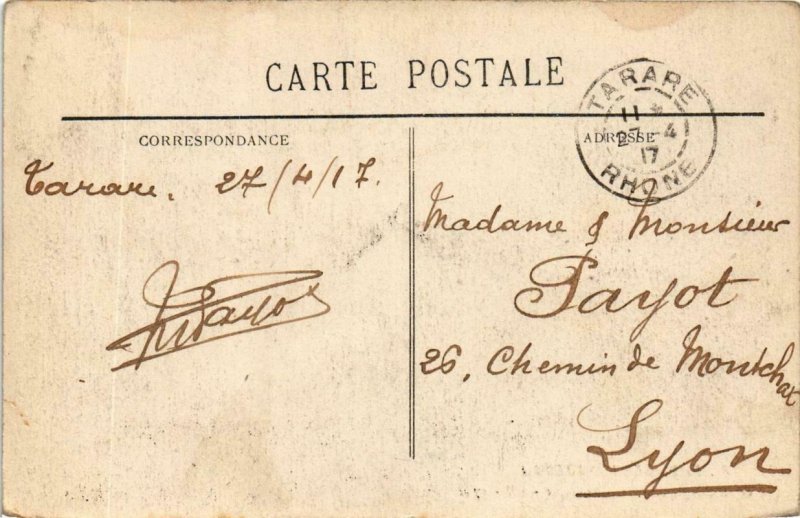 CARTE POSTALE
TARARE
11
27 - 4
17
RHONE
CORRESPONDANCE
Tarare, 27/4/17.
ADRESSE
Madame & Monsieur
Payot
26, Chemin de Montchat
Lyon